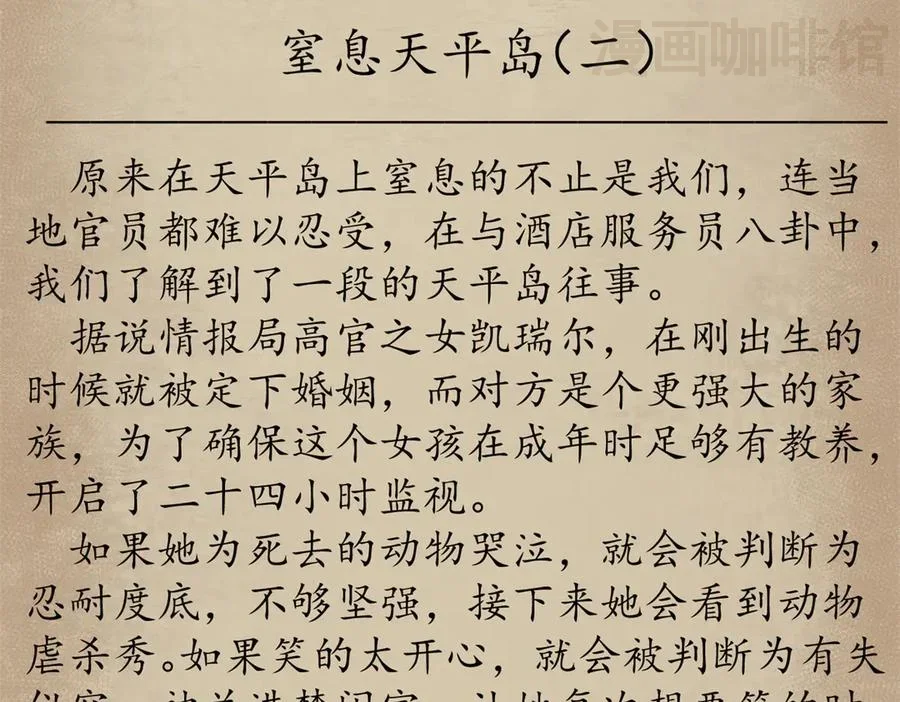 窒息天平岛(二)
漫画咖啡馆
原来在天平岛上窒息的不止是我们，连当
地官员都难以忍受，在与酒店服务员八卦中，
我们了解到了一段的天平岛往事。
据说情报局高官之女凯瑞尔，在刚出生的
时候就被定下婚姻，而对方是个更强大的家
族，为了确保这个女孩在成年时足够有教养，
开启了二十四小时监视。
如果她为死去的动物哭泣，就会被判断为
忍耐度底，不够坚强，接下来她会看到动物
虐杀秀。如果笑的太开心，就会被判断为有失